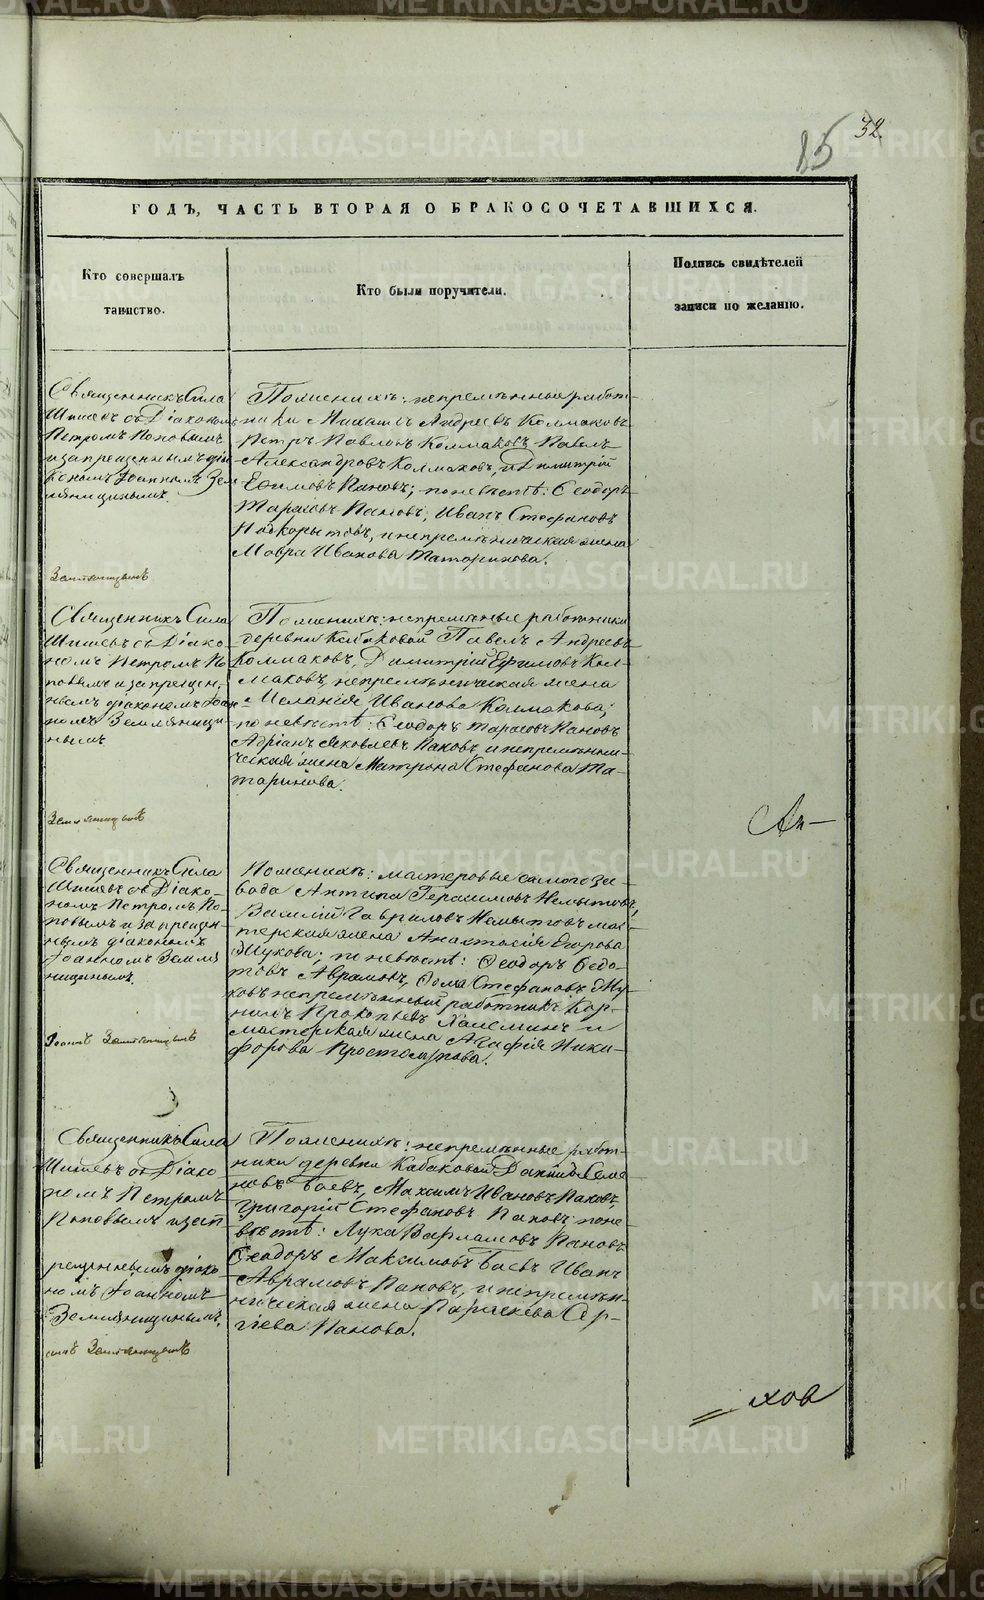 32.
15
ГОДЪ, ЧАСТЬ ВТОРАЯ О БРАКОСОЧЕТАВШИХСЯ.
Кто совершалъ
таинство.
Кто были поручители.
Подпись свидѣтелей
записи по желанію.
Священникъ Сила
съ Діакономъ
Петромъ Поповымъ
и запрещеннымъ діа-
кономъ Іоанномъ Зем-
ляницынымъ.
По женихѣ: непремѣнные работ-
ники Михаилъ Андреевъ Колмаковъ
Петръ Павловъ Колмаковъ, Павелъ
Александровъ Колмаковъ, и Димитрій
Ефимовъ Пановъ; по невѣстѣ: Ѳеодоръ
Тарасовъ Пановъ, Иванъ Стефановъ
Подкорытовъ, и непремѣнническая жена
Мавра Иванова Татаринова.
Земляницынъ
Священникъ Сила
съ Діако-
номъ Петромъ По-
повымъ и запрещен-
нымъ діакономъ Іоан-
номъ Земляници-
нымъ
По женихѣ: непремѣнные работники
деревни Кабаковой Павелъ Андреевъ
Колмаковъ, Димитрій Ефимовъ Кол-
маковъ, непремѣнническая жена
Меланія Иванова Колмакова;
по невѣстѣ: Ѳеодоръ Тарасовъ Пановъ
Адріанъ Яковлевъ Пановъ, и непремѣнни-
ческая жена Матрона Стефанова Та-
таринова.
Земляницынъ
Ан-
Священникъ Сила
съ Діако-
номъ Петромъ По-
повымъ и запрещен-
нымъ діакономъ
Іоанномъ Земля
ницинымъ.
По женихѣ: мастеровые самого за-
вода Антипа Герасимовъ Немытовъ,
Василій Гавриловъ Немытовъ мас-
терская жена Анастасія Егорова
Жукова; по невѣстѣ: Ѳеодоръ Ѳедо-
товъ Аврамовъ, Ѳома Стефановъ Жу-
ковъ непремѣнный работникъ Кор-
нилъ Прокопьевъ и
мастерская жена Агафія Ники-
форова
Іоаннъ Земляницынъ
Священникъ Сила
съ Діако
номъ Петромъ
Поповымъ и
рещеннымъ діако
номъ Іоанномъ
Земляницинымъ.
По женихѣ: непремѣнные работ-
ники деревни Кабаковой Даніилъ Семе
новъ Баевъ, Максимъ Ивановъ Пановъ,
Григорій Стефановъ Пановъ; по не-
вѣстѣ: Лука Варламовъ Пановъ
Ѳеодоръ Максимовъ Баевъ Иванъ
Аврамовъ Пановъ, и непремѣн-
ническая жена Параскева Сер-
гіева Панова.
Земляницынъ
хов
METRIKI.GASO-URAL.RU